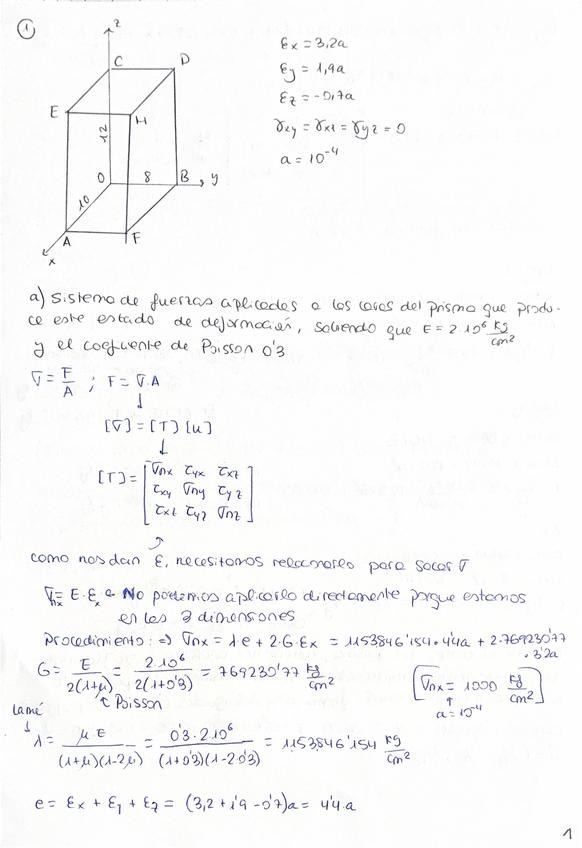 1
z
C
D
E
H
12
O
8
B
y
10
A
F
x
εx = 3,2a
εy = 1,9a
εz = -0,7a
γxy = γxz = γyz = 0
a = 10⁻⁴
a) Sistema de fuerzas aplicadas a las caras del prisma que produ-
ce este estado de deformación, sabiendo que E = 2·10⁶ kg/cm²
y el coeficiente de Poisson 0'3
σ = F/A ; F = σ·A
↓
[σ] = [T] [u]
↓
[T] = [σnx τyx τxz
τxy σny τyz
τxz τyz σnz]
como nos dan ε, necesitamos relacionarlo para sacar σ
σnx = E·εx ← No podemos aplicarlo directamente porque estamos
en las 3 dimensiones
Procedimiento: ⇒ σnx = λe + 2·G·εx = 1153846'154·4'4a + 2·769230'77
·3'2a
G = E/2(1+μ) = 2·10⁶/2(1+0'3) = 769230'77 kg/cm²
↑ Poisson
[σnx = 1000 kg/cm²]
↑
a = 10⁻⁴
Lamé
↓
λ = μ·E/(1+μ)(1-2μ) = 0'3·2·10⁶/(1+0'3)(1-2·0'3) = 1153846'154 kg/cm²
e = εx + εy + εz = (3,2 + 1'9 - 0'7)a = 4'4·a
1